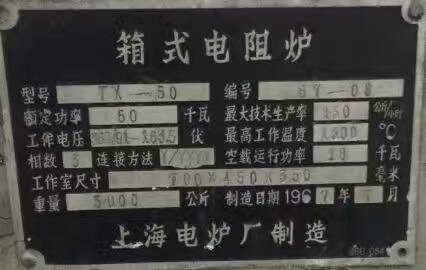 箱式电阻炉
型号 TX—50 编号 67-01
额定功率 50 千瓦 最大技术生产率 450 公斤/小时
工作电压 伏 最高工作温度 1300 °C
相数 3 连接方法 空载运行功率 18 千瓦
工作室尺寸 700×450×350 毫米
重量 3000 公斤 制造日期 1967年7月
上海电炉厂制造